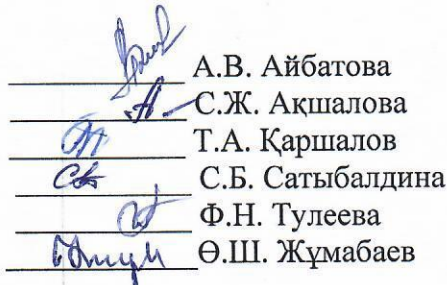 А.В. Айбатова
С.Ж. Ақшалова
Т.А. Қаршалов
С.Б. Сатыбалдина
Ф.Н. Тулеева
Ө.Ш. Жұмабаев